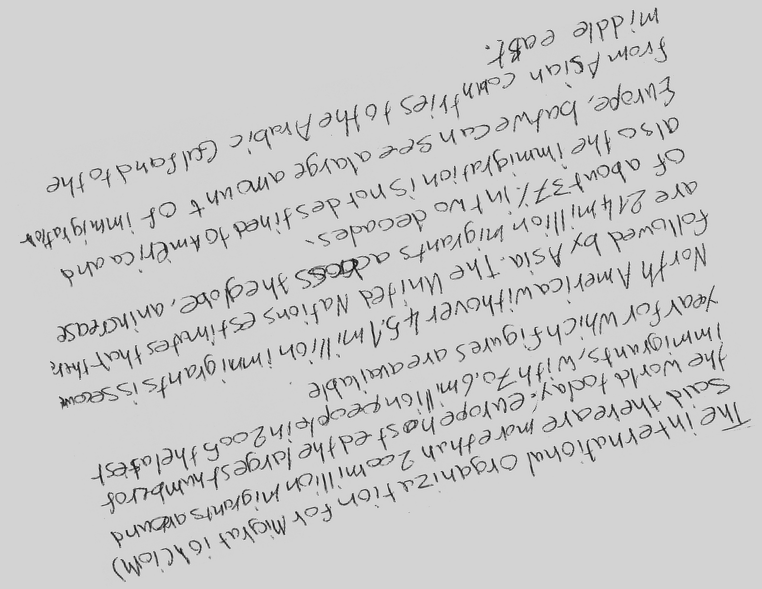 The international organization for Migration (IOM)
said there are more than 200 million migrants around
the world today. Europe hosted the largest number of
immigrants, with 70.6 million people in 2005 the latest
year for which figures are available.
North America with over 45.1 million immigrants is second
followed by Asia. The United Nations estimates that there
are 214 million migrants across the globe, an increase
of about 37% in two decades.
also the immigration is not destined to America and
Europe, but we can see a large amount of immigration
from Asian countries to the Arabic Gulf and to the
middle east.